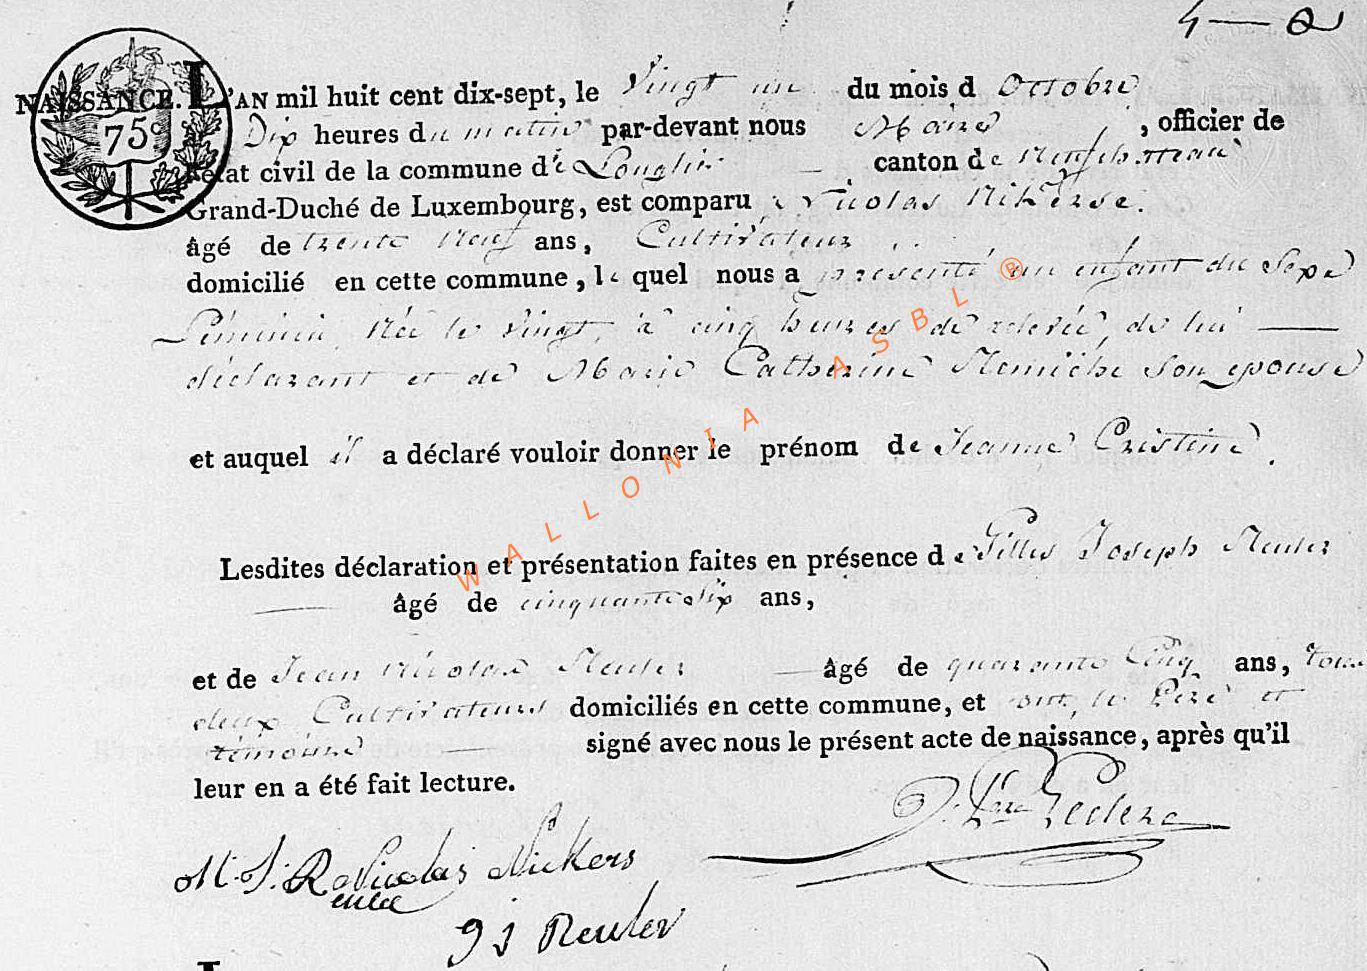 4 —
NAISSANCE. L'AN mil huit cent dix-sept, le Vingt un du mois d Octobre
75c Dix heures du matin par-devant nous Maire, officier de
l'état civil de la commune de Longlier canton de Neufchateau
Grand-Duché de Luxembourg, est comparu Nicolas
âgé de trente Neuf ans, Cultivateur
domicilié en cette commune, le quel nous a presenté un enfant du Sexe
Féminin, Née le Vingt, à cinq heures de relevée, de lui
déclarant et de Marie Catherine son epouse
et auquel il a déclaré vouloir donner le prénom de Jeanne Cristine.
Lesdites déclaration et présentation faites en présence de Gilles Joseph Reuler
âgé de cinquante Six ans,
et de Jean Nicolas Reuler âgé de quarante Cinq ans, tous
deux Cultivateurs domiciliés en cette commune, et ont, le Pere et
témoins signé avec nous le présent acte de naissance, après qu'il
leur en a été fait lecture.
Leclerc
Nicolas Nickers
g j Reuler
WALLONIA ASBL ®